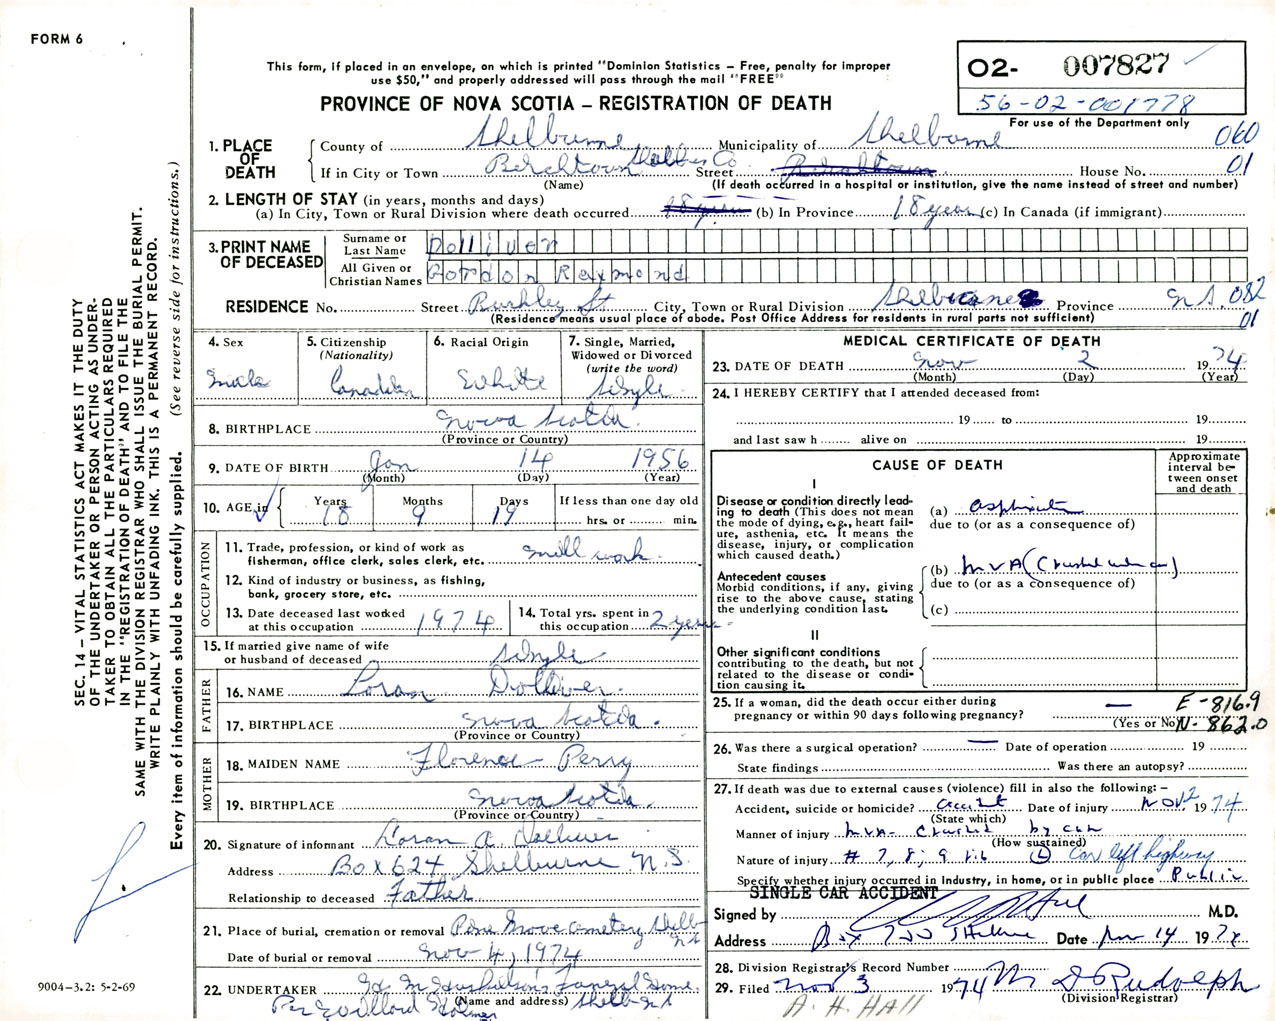 FORM 6
This form, if placed in an envelope, on which is printed "Dominion Statistics – Free, penalty for improper
use $50," and properly addressed will pass through the mail "FREE"
PROVINCE OF NOVA SCOTIA – REGISTRATION OF DEATH
O2- 007827
56-02-001778
For use of the Department only
060
01
1. PLACE OF DEATH
County of Shelburne Municipality of Shelburne
If in City or Town Birchtown Shelburne Co Street House No.
(Name) (If death occurred in a hospital or institution, give the name instead of street and number)
2. LENGTH OF STAY (in years, months and days)
(a) In City, Town or Rural Division where death occurred (b) In Province 18 years (c) In Canada (if immigrant)
3. PRINT NAME OF DECEASED
Surname or Last Name Dolliver
All Given or Christian Names Gordon Raymond
RESIDENCE No. Street St City, Town or Rural Division Shelburne Province N.S. 082
(Residence means usual place of abode. Post Office Address for residents in rural parts not sufficient) 01
4. Sex Male
5. Citizenship (Nationality) Canadian
6. Racial Origin White
7. Single, Married, Widowed or Divorced (write the word) Single
8. BIRTHPLACE Nova Scotia
(Province or Country)
9. DATE OF BIRTH Jan 14 1956
(Month) (Day) (Year)
10. AGE in Years 18 Months 9 Days 19 If less than one day old hrs. or min.
OCCUPATION
11. Trade, profession, or kind of work as
fisherman, office clerk, sales clerk, etc. Mill work
12. Kind of industry or business, as fishing,
bank, grocery store, etc.
13. Date deceased last worked
at this occupation 1974
14. Total yrs. spent in
this occupation 2 years
15. If married give name of wife
or husband of deceased Single
FATHER
16. NAME Loran Dolliver
17. BIRTHPLACE Nova Scotia
(Province or Country)
MOTHER
18. MAIDEN NAME Florence Perry
19. BIRTHPLACE Nova Scotia
(Province or Country)
20. Signature of informant Loran A Dolliver
Address Box 624 Shelburne N.S.
Relationship to deceased Father
21. Place of burial, cremation or removal Pine Grove Cemetery Shelb NS
Date of burial or removal Nov 4, 1974
22. UNDERTAKER Funeral Home
(Name and address) Per Willard Shelb NS
MEDICAL CERTIFICATE OF DEATH
23. DATE OF DEATH Nov 2 1974
(Month) (Day) (Year)
24. I HEREBY CERTIFY that I attended deceased from:
19 to 19
and last saw h alive on 19
CAUSE OF DEATH
Approximate interval between onset and death
I
Disease or condition directly lead-
ing to death (This does not mean
the mode of dying, e.g., heart fail-
ure, asthenia, etc. It means the
disease, injury, or complication
which caused death.)
(a) asphixia
due to (or as a consequence of)
Antecedent causes
Morbid conditions, if any, giving
rise to the above cause, stating
the underlying condition last.
(b) MVA (Crushed under car)
due to (or as a consequence of)
(c)
II
Other significant conditions
contributing to the death, but not
related to the disease or condi-
tion causing it.
25. If a woman, did the death occur either during
pregnancy or within 90 days following pregnancy? —
(Yes or No)
E-816.9
N-862.0
26. Was there a surgical operation? — Date of operation 19
State findings Was there an autopsy?
27. If death was due to external causes (violence) fill in also the following: –
Accident, suicide or homicide? Accident Date of injury Nov 2 1974
(State which)
Manner of injury MVA- Crushed by car
(How sustained)
Nature of injury # 7, 8, 9 rib (L) Car left highway
Specify whether injury occurred in Industry, in home, or in public place Public
SINGLE CAR ACCIDENT
Signed by M.D.
Address Box Shelburne Date Nov 14 1974
28. Division Registrar's Record Number
29. Filed Nov 3 1974 M D Rudolph
(Division Registrar)
A. H. HALL
SEC. 14 – VITAL STATISTICS ACT MAKES IT THE DUTY
OF THE UNDERTAKER OR PERSON ACTING AS UNDER-
TAKER TO OBTAIN ALL THE PARTICULARS REQUIRED
IN THE "REGISTRATION OF DEATH" AND TO FILE THE
SAME WITH THE DIVISION REGISTRAR WHO SHALL ISSUE THE BURIAL PERMIT.
WRITE PLAINLY WITH UNFADING INK. THIS IS A PERMANENT RECORD.
Every item of information should be carefully supplied. (See reverse side for instructions.)
9004-3.2: 5-2-69